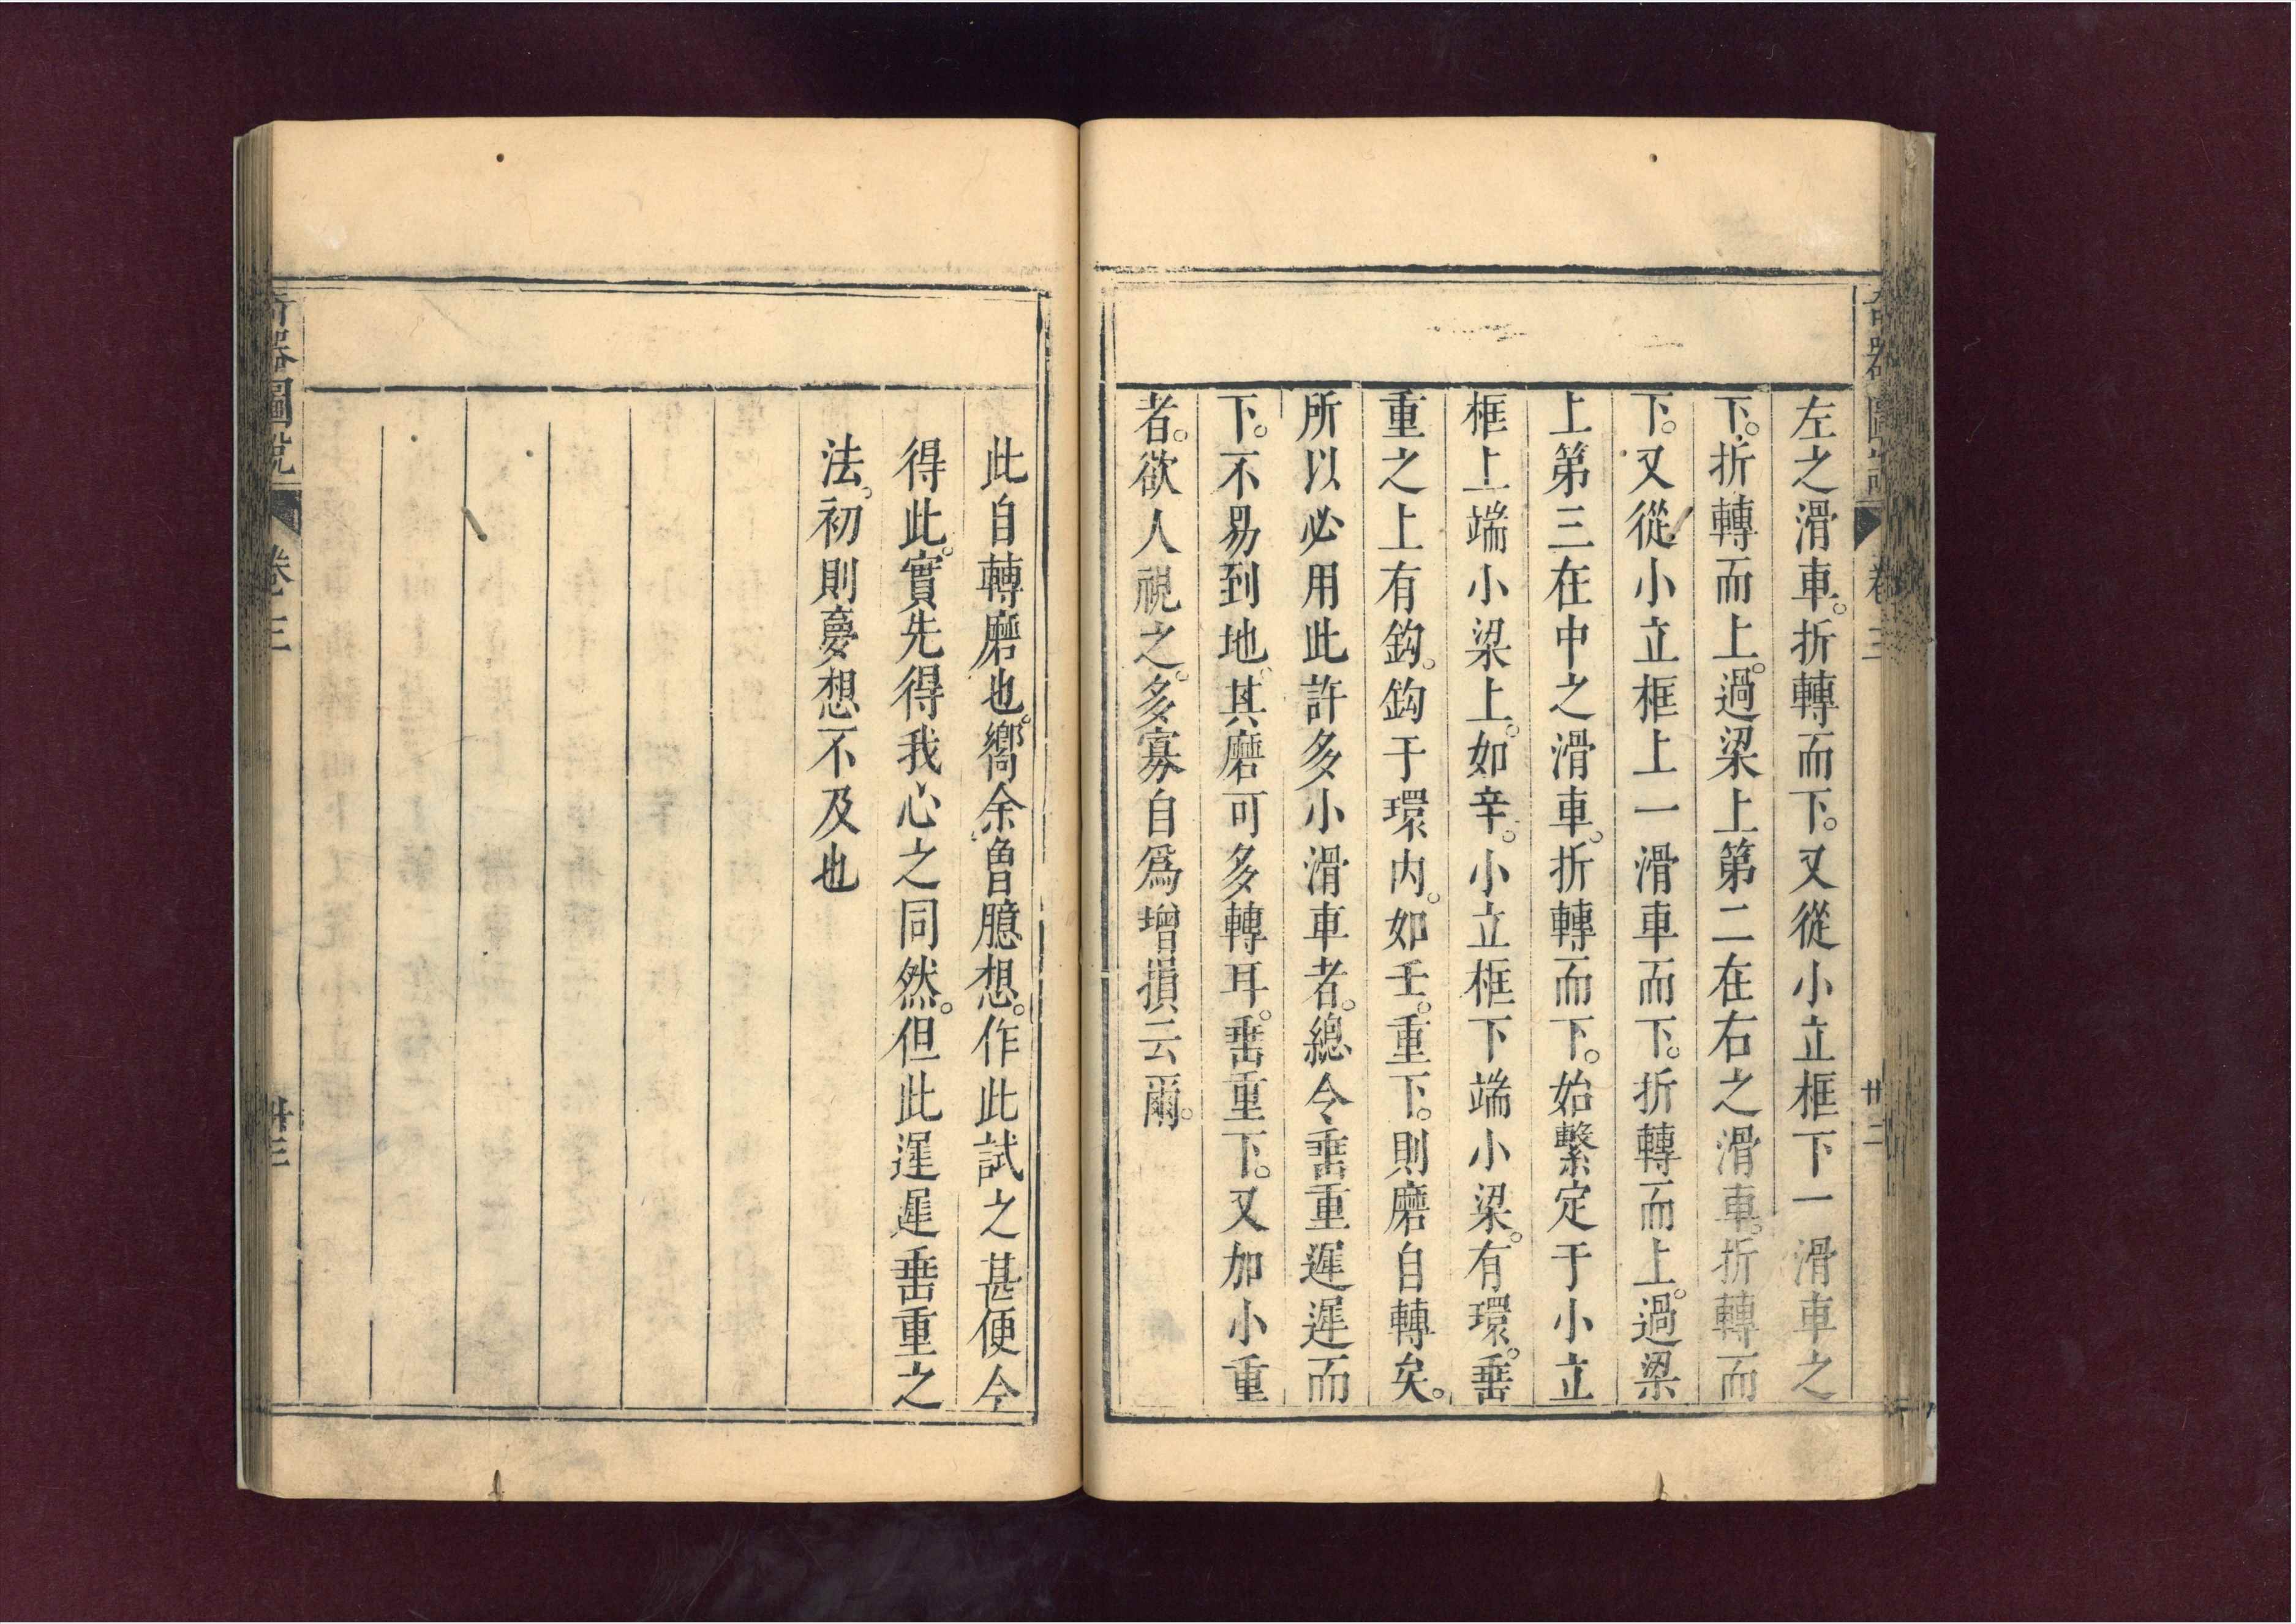 奇器圖說 卷三 廿二
左之滑車。折轉而下。又從小立框下一滑車之
下。折轉而上。過梁上第二在右之滑車。折轉而
下。又從小立框上一滑車而下。折轉而上。過梁
上第三在中之滑車。折轉而下。始繫定于小立
框上端小梁上。如辛。小立框下端小梁。有環。垂
重之上有鈎。鈎于環內。如壬。重下。則磨自轉矣。
所以必用此許多小滑車者。總令垂重遲遲而
下。不易到地、其磨可多轉耳。垂重下。又加小重
者。欲人視之。多寡自爲增損云爾。
此自轉磨也。嚮余魯臆想。作此試之甚便今
得此。實先得我心之同然。但此遲遲垂重之
法。初則夢想不及也
奇器圖說 卷三 廿三